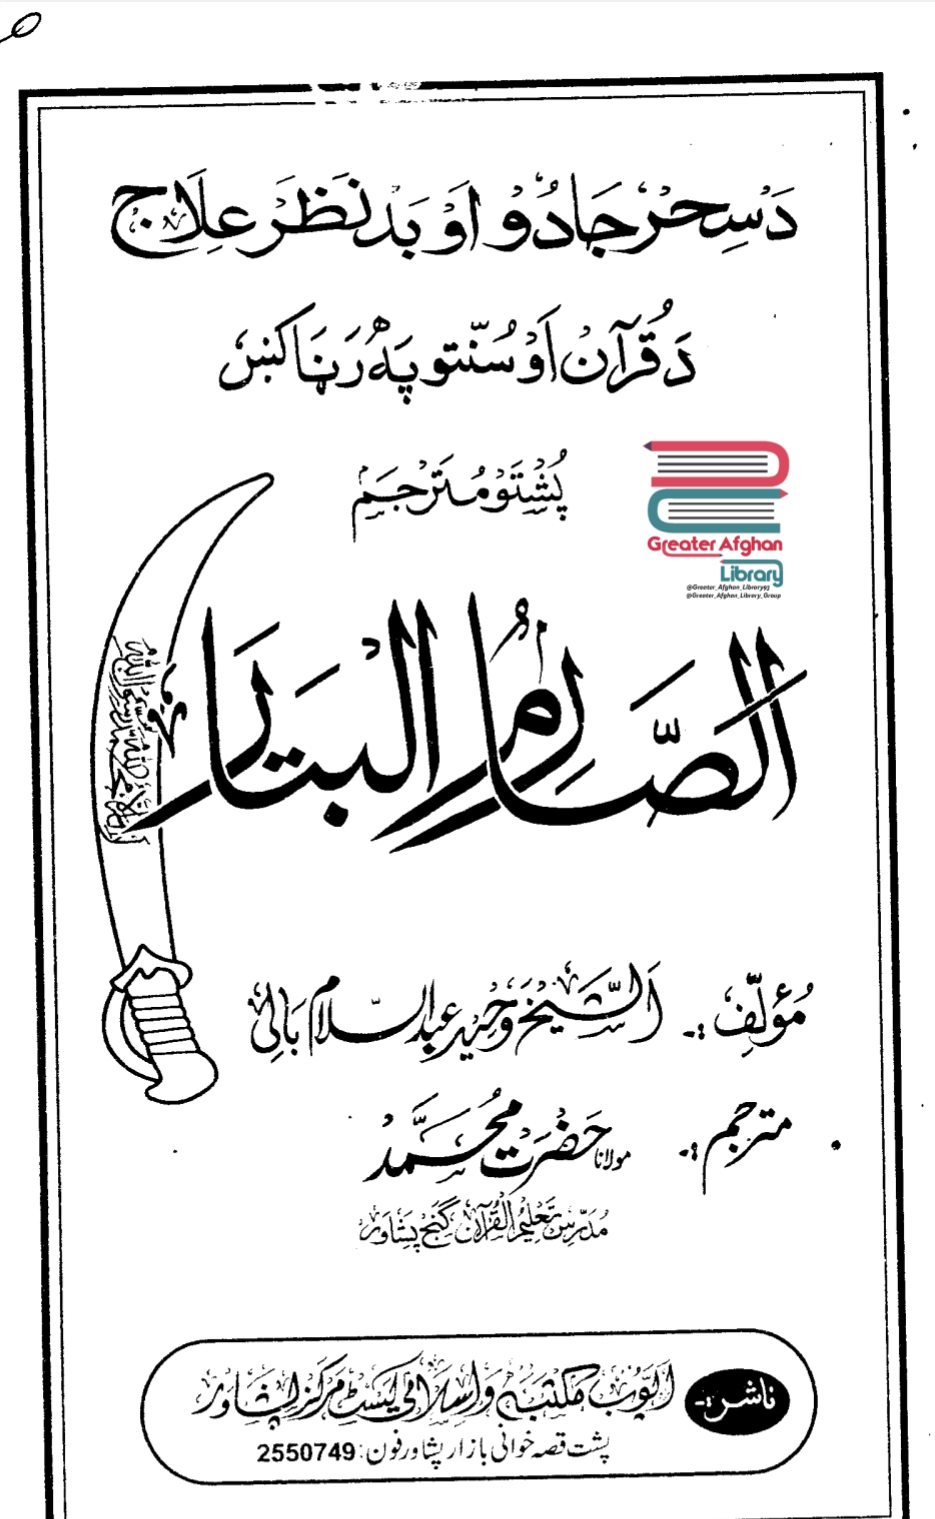 دَسِحْر جَادُوْ اَوْ بَدْ نَظَرْ عِلَاج
دَ قُرْآن اَوْ سُنّتو پَهْ رَڼَا کښ
پُشْتَوْ مُتَرْجَمْ
Greater Afghan
Library
@Greater_Afghan_Library93
@Greater_Afghan_Library_Group
الصَّارِمُ البتار
مُؤلّف :- اَلشَّیْخ وَحِیْد عبدالسّلام بَالِیْ
مترجم :- مولانا حَضْرَتْ مُحَمَّدْ
مُدَرِّس تَعْلِیْمُ الْقُرْآن گنج پشاور
ناشر :- مکتبه واسلامی کیسٹ مرکز پشاور
پشت قصه خوانی بازار پشاور فون: 2550749